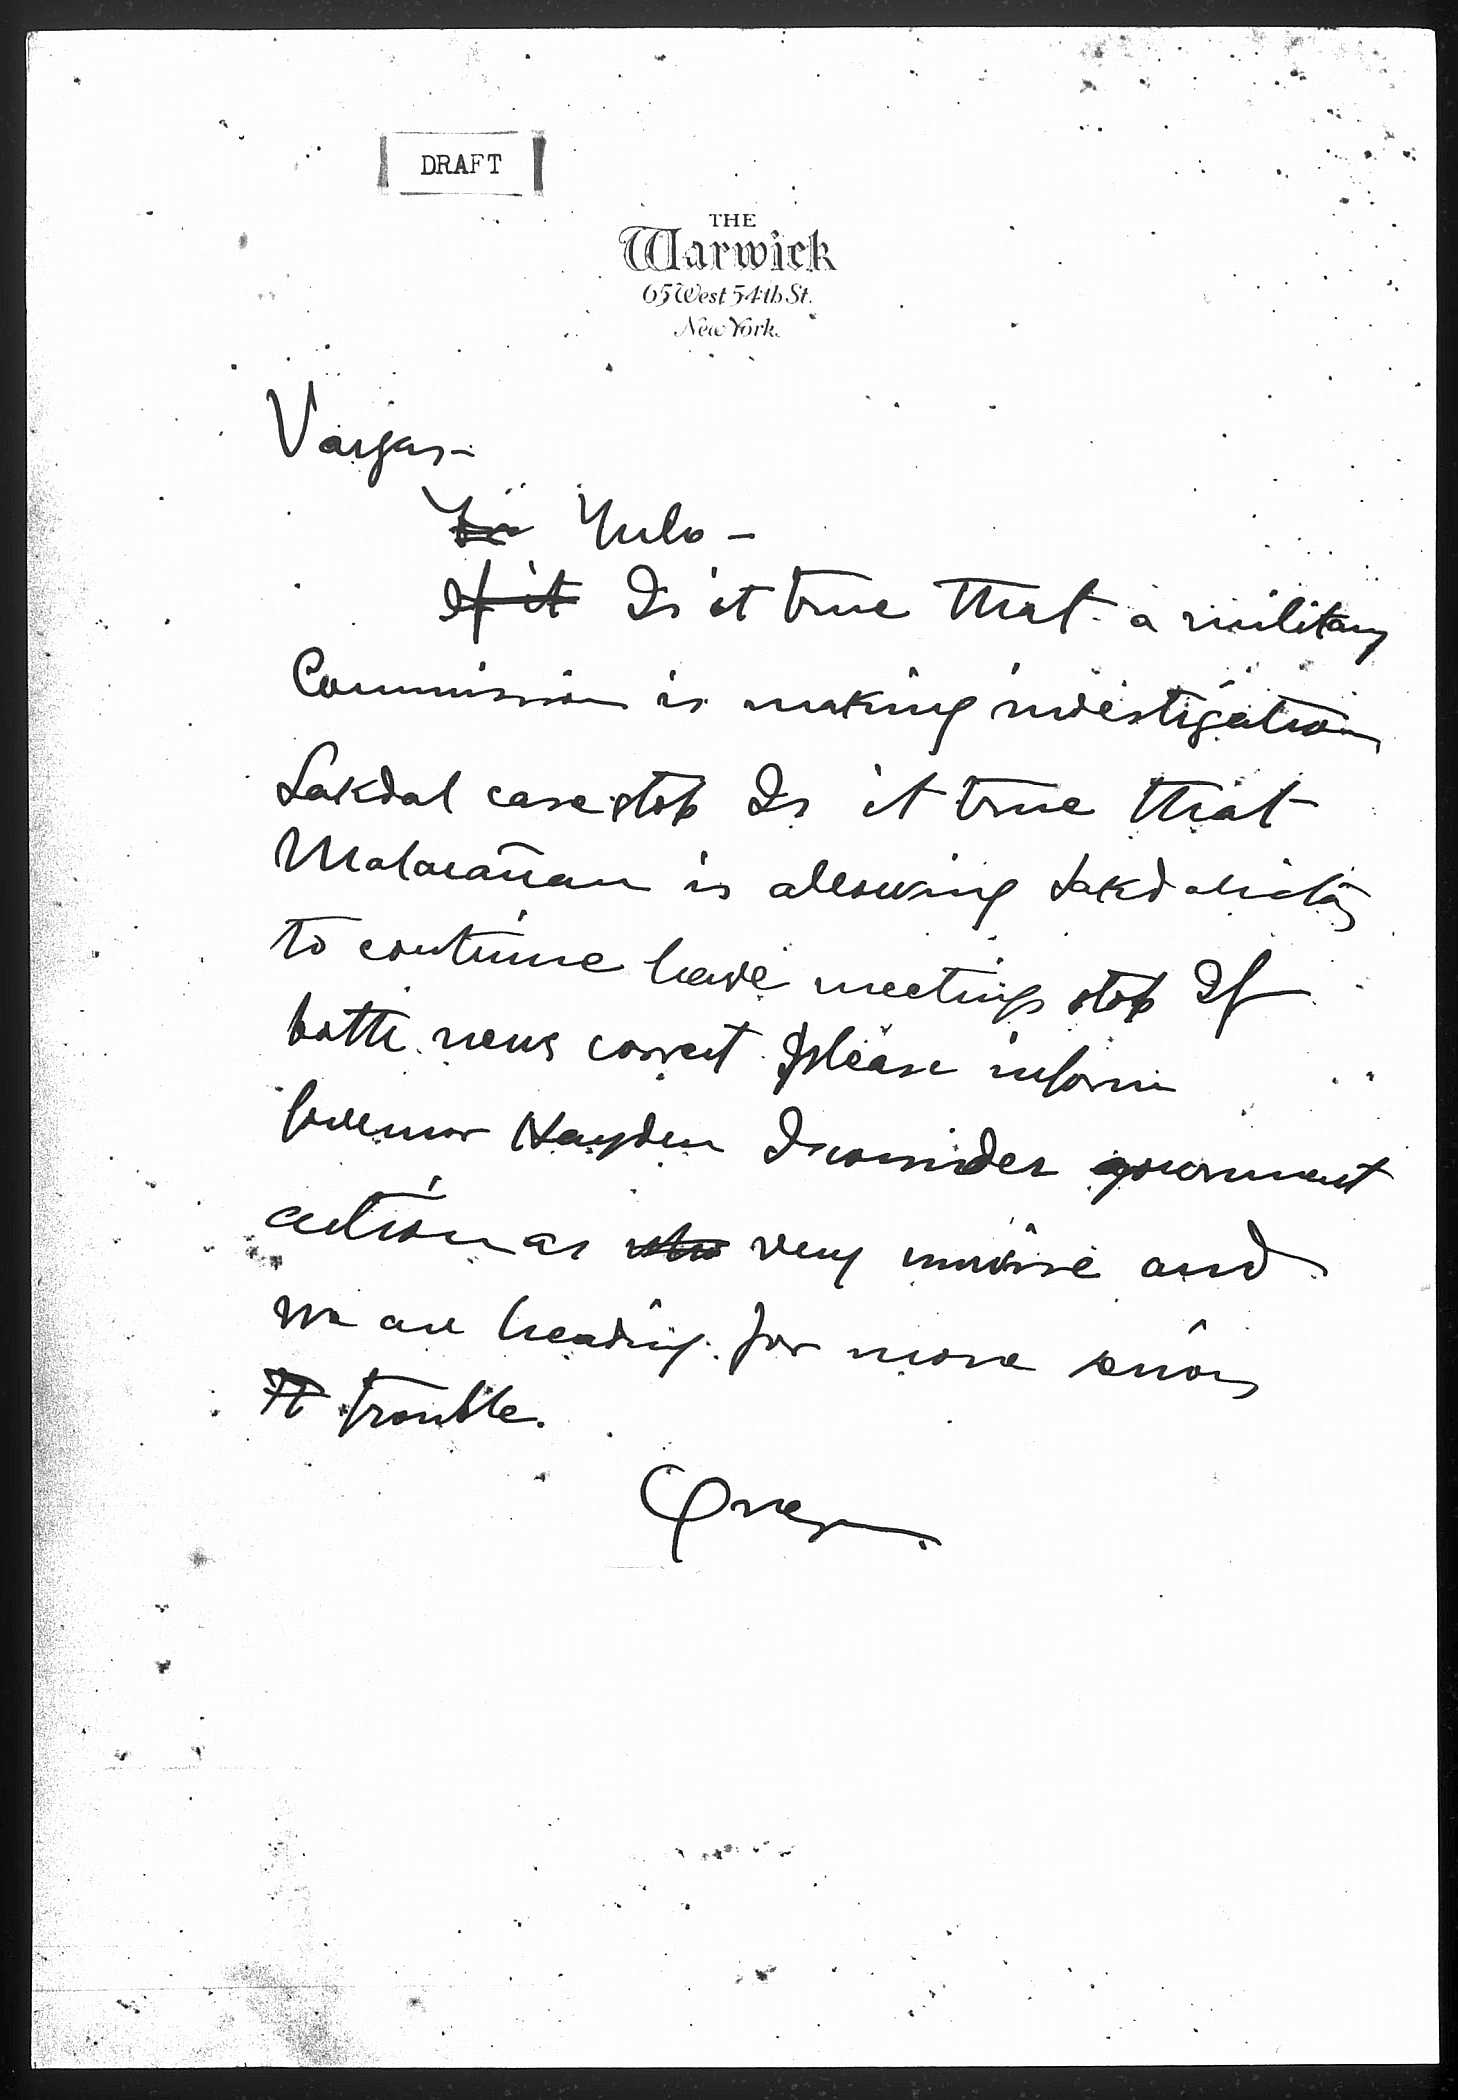 DRAFT
THE
Warwick
65 West 54th St.
New York.
Vargas-
Yulo -
If it Is it true that a military
Commission is making investigation
Sakdal case stop Is it true that
Malacañan is allowing Sakdalistas
to continue have meetings stop If
both news correct please inform
Governor Hayden I consider government
action as very unwise and
we are heading for more serious
trouble.
Quezon